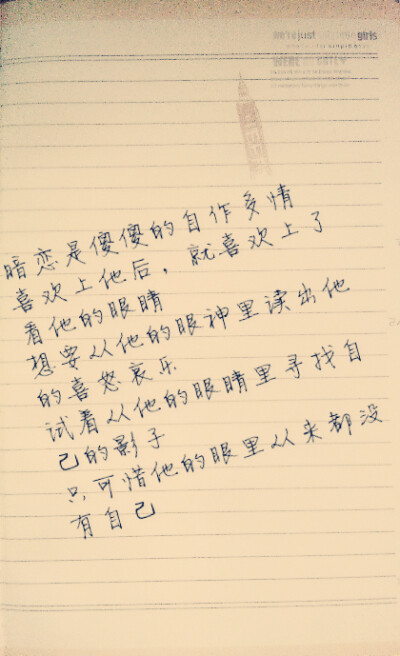 just girls
暗恋是傻傻的自作多情
喜欢上他后，就喜欢上了
看他的眼睛
想要从他的眼神里读出他
的喜怒哀乐
试着从他的眼睛里寻找自
己的影子
只可惜他的眼里从来都没
有自己